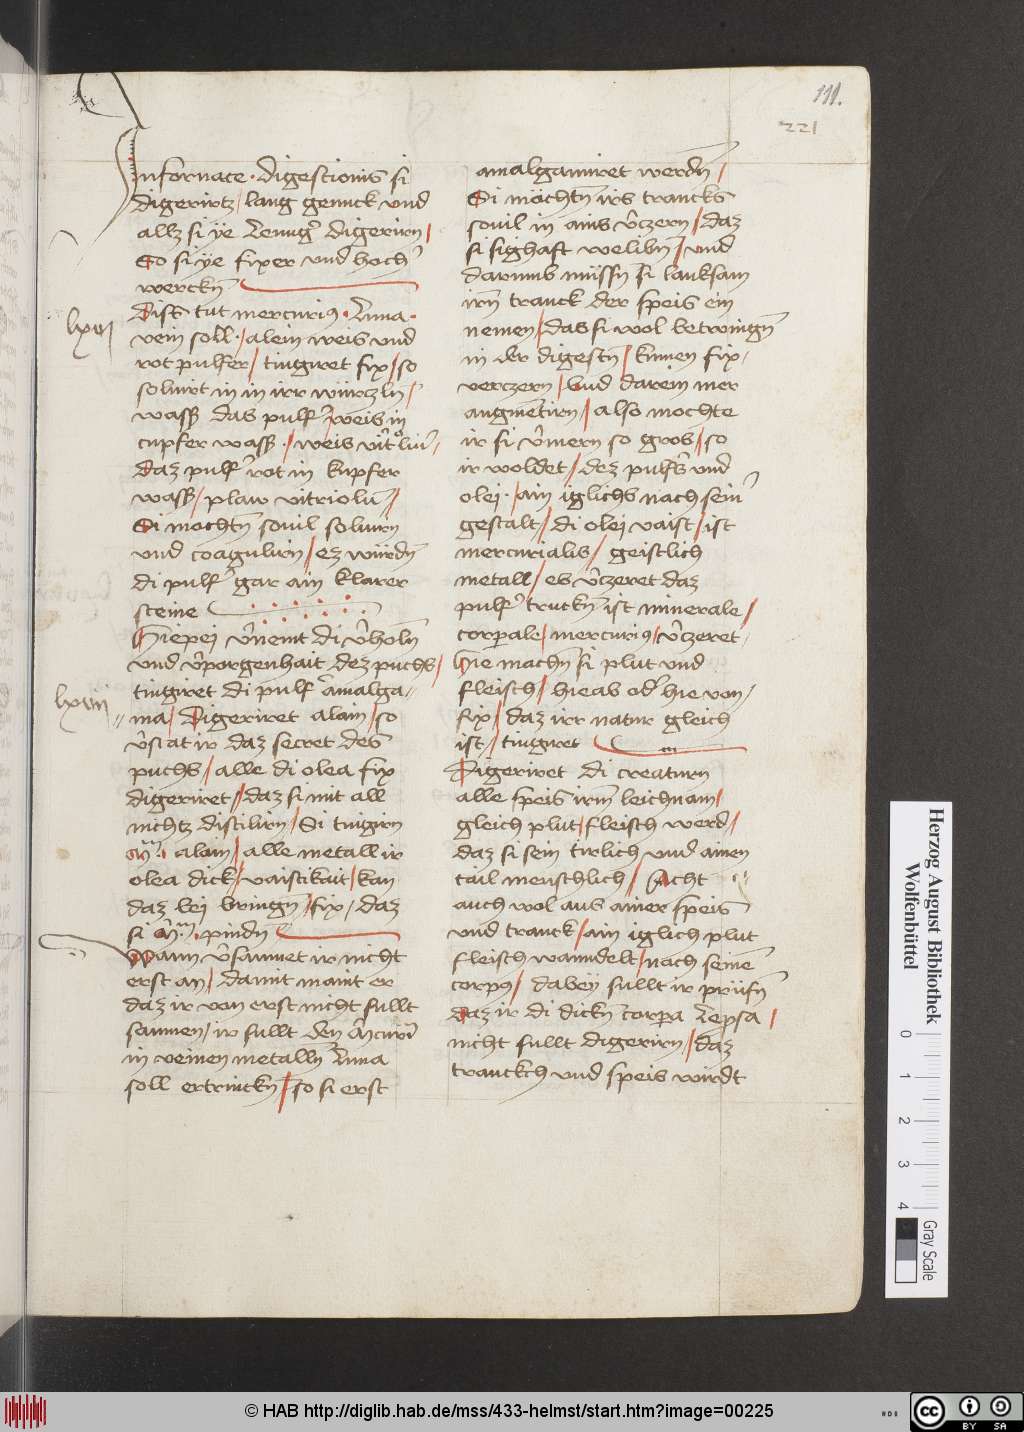 111.
221
Infornace · digestionis si
digerirtz / lang genuck vnd
allz si ye lenng̾ digerirn /
So si ye fixer vnd hoch̾
werckn̄
Dist tut mercurius · luna ·
lxvij
vein soll · / alein weis vnd
rot pulfer / tingiret fix / so
soluirt in in irr würtzln̄ /
wass̾ das pulf̾ weis in
cupfer wass̾ · / weis
daz pulf̾ rot in kupfer
wass̾ / plaw vitriolū /
Si mochtn̄ souil soluirn
vnd coagulirn / ez würdn̄
di pulf̾ gar ain klarer
steine
Hiepei v̾nemt di v̾holn̄
vnd v̾porgenhait dez puchs /
lxviij
tingiret di pulf̾ amalga-
ma / Digeriret alain / so
v̾stat ir daz secret des
puchs / alle di olea fix
digeriret / daz si mit all
nichtz distilirn / Si tingirn
alain / alle metall ir
olea dick / vaistikait / kan
daz bei bringn̄ / fix / daz
si pindn̄
Wann v̾samnet ir nicht
erst an / damit maint er
daz ir von erst nicht sullt
samnen / ir sullt den m̾curiū
in veinen metalln̄ luna
soll ertrinckn̄ / so si erst
amalgamiret werdn̄ /
Si möchtn̄ irs trancks
souil in ains v̾czern / daz
si sighaft welibn̄ / vnd
darumb müssn̄ si lanksam
irn̄ tranck der speis ein
nemen / das si wol betwingn̄
in der digestn̄ / kinnen fix /
verczern / vnd darein mer
augmētirn / also mochte
ir si v̾mern so gros / so
ir woldet / dez pulf̾s vnd
olej · / ain iglichs nach sein̾
gestalt / di olei vaist / ist
mercurialis / geistlich
metall / es v̾czeret daz
pulf̾ truckn̄ ist minerale /
corporale / mercurius / v̾czeret
hie machn̄ si plut vnd
fleisch / hieab od̾ hie von /
fix / daz irr natur gleich
ist / tingiret
Digeriret di creaturn
alle speis irm leichnam /
gleich plut / fleisch werd /
daz si sein tirlich vnd ainen
tail menschlich / Acht
auch wol aus ainer speis
vnd tranck / ain iglich plut
fleisch wanndelt / nach seinē
corpus / dabey sullt ir prüfn̄
daz ir di dickn̄ corpora leprosa /
nicht sullt digerirn / daz
tranckch vnd speis wirdt
Herzog August Bibliothek
Wolfenbüttel
0 1 2 3 4
Gray Scale
© HAB http://diglib.hab.de/mss/433-helmst/start.htm?image=00225
cc BY SA